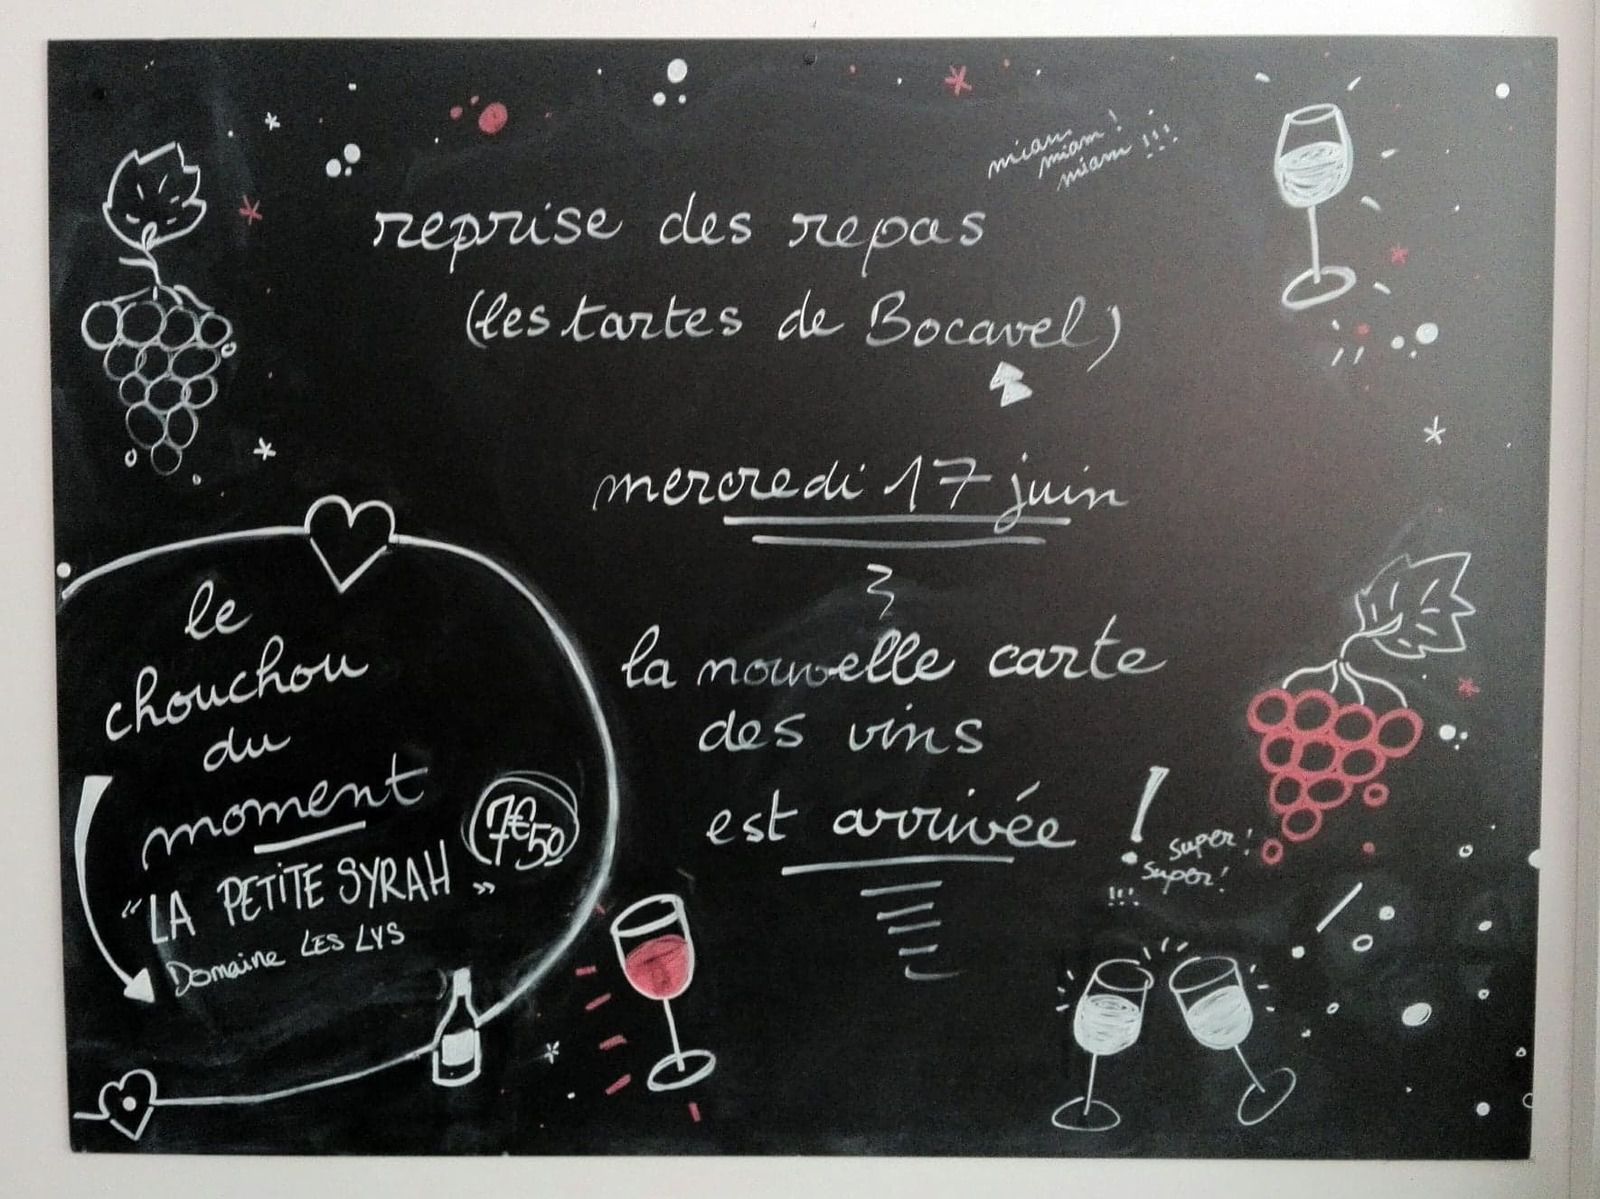 miam
miam !
miam !!!
reprise des repas
(les tartes de Bocavel)
mercredi 17 juin
la nouvelle carte
des vins
est arrivée !
super !
super !
!!!
le
chouchou
du
moment
7€50
“LA PETITE SYRAH”
Domaine LES LYS